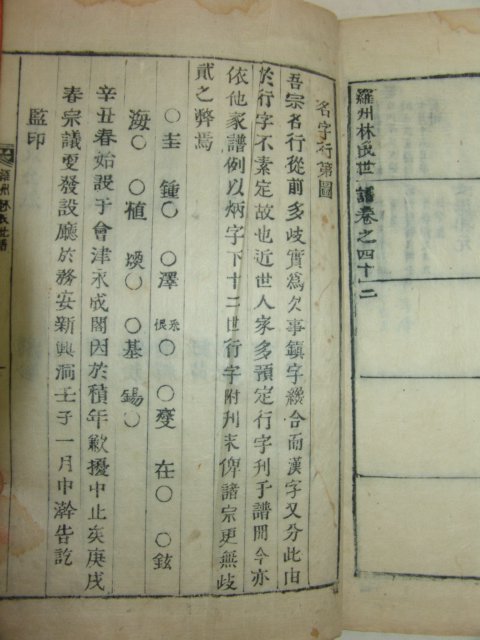 羅州林氏世譜卷之四十二
名字行第圖
吾宗名行從前多歧實爲欠事鎭字纔合而漢字又分此由
於行字不素定故也近世人家多預定行字刊于譜間今亦
依他家譜例以炳字下十二世行字附刊末俾諸宗更無歧
貳之弊焉
○圭 鍾○ ○澤 ○○燮 在○ ○鉉
海○ ○植 ○基 錫○
辛丑春始設于會津永成閣因於積年歉擾中止矣庚戌
春宗議更發設廳於務安新興洞壬子一月中澣告訖
監印
羅州林氏世譜